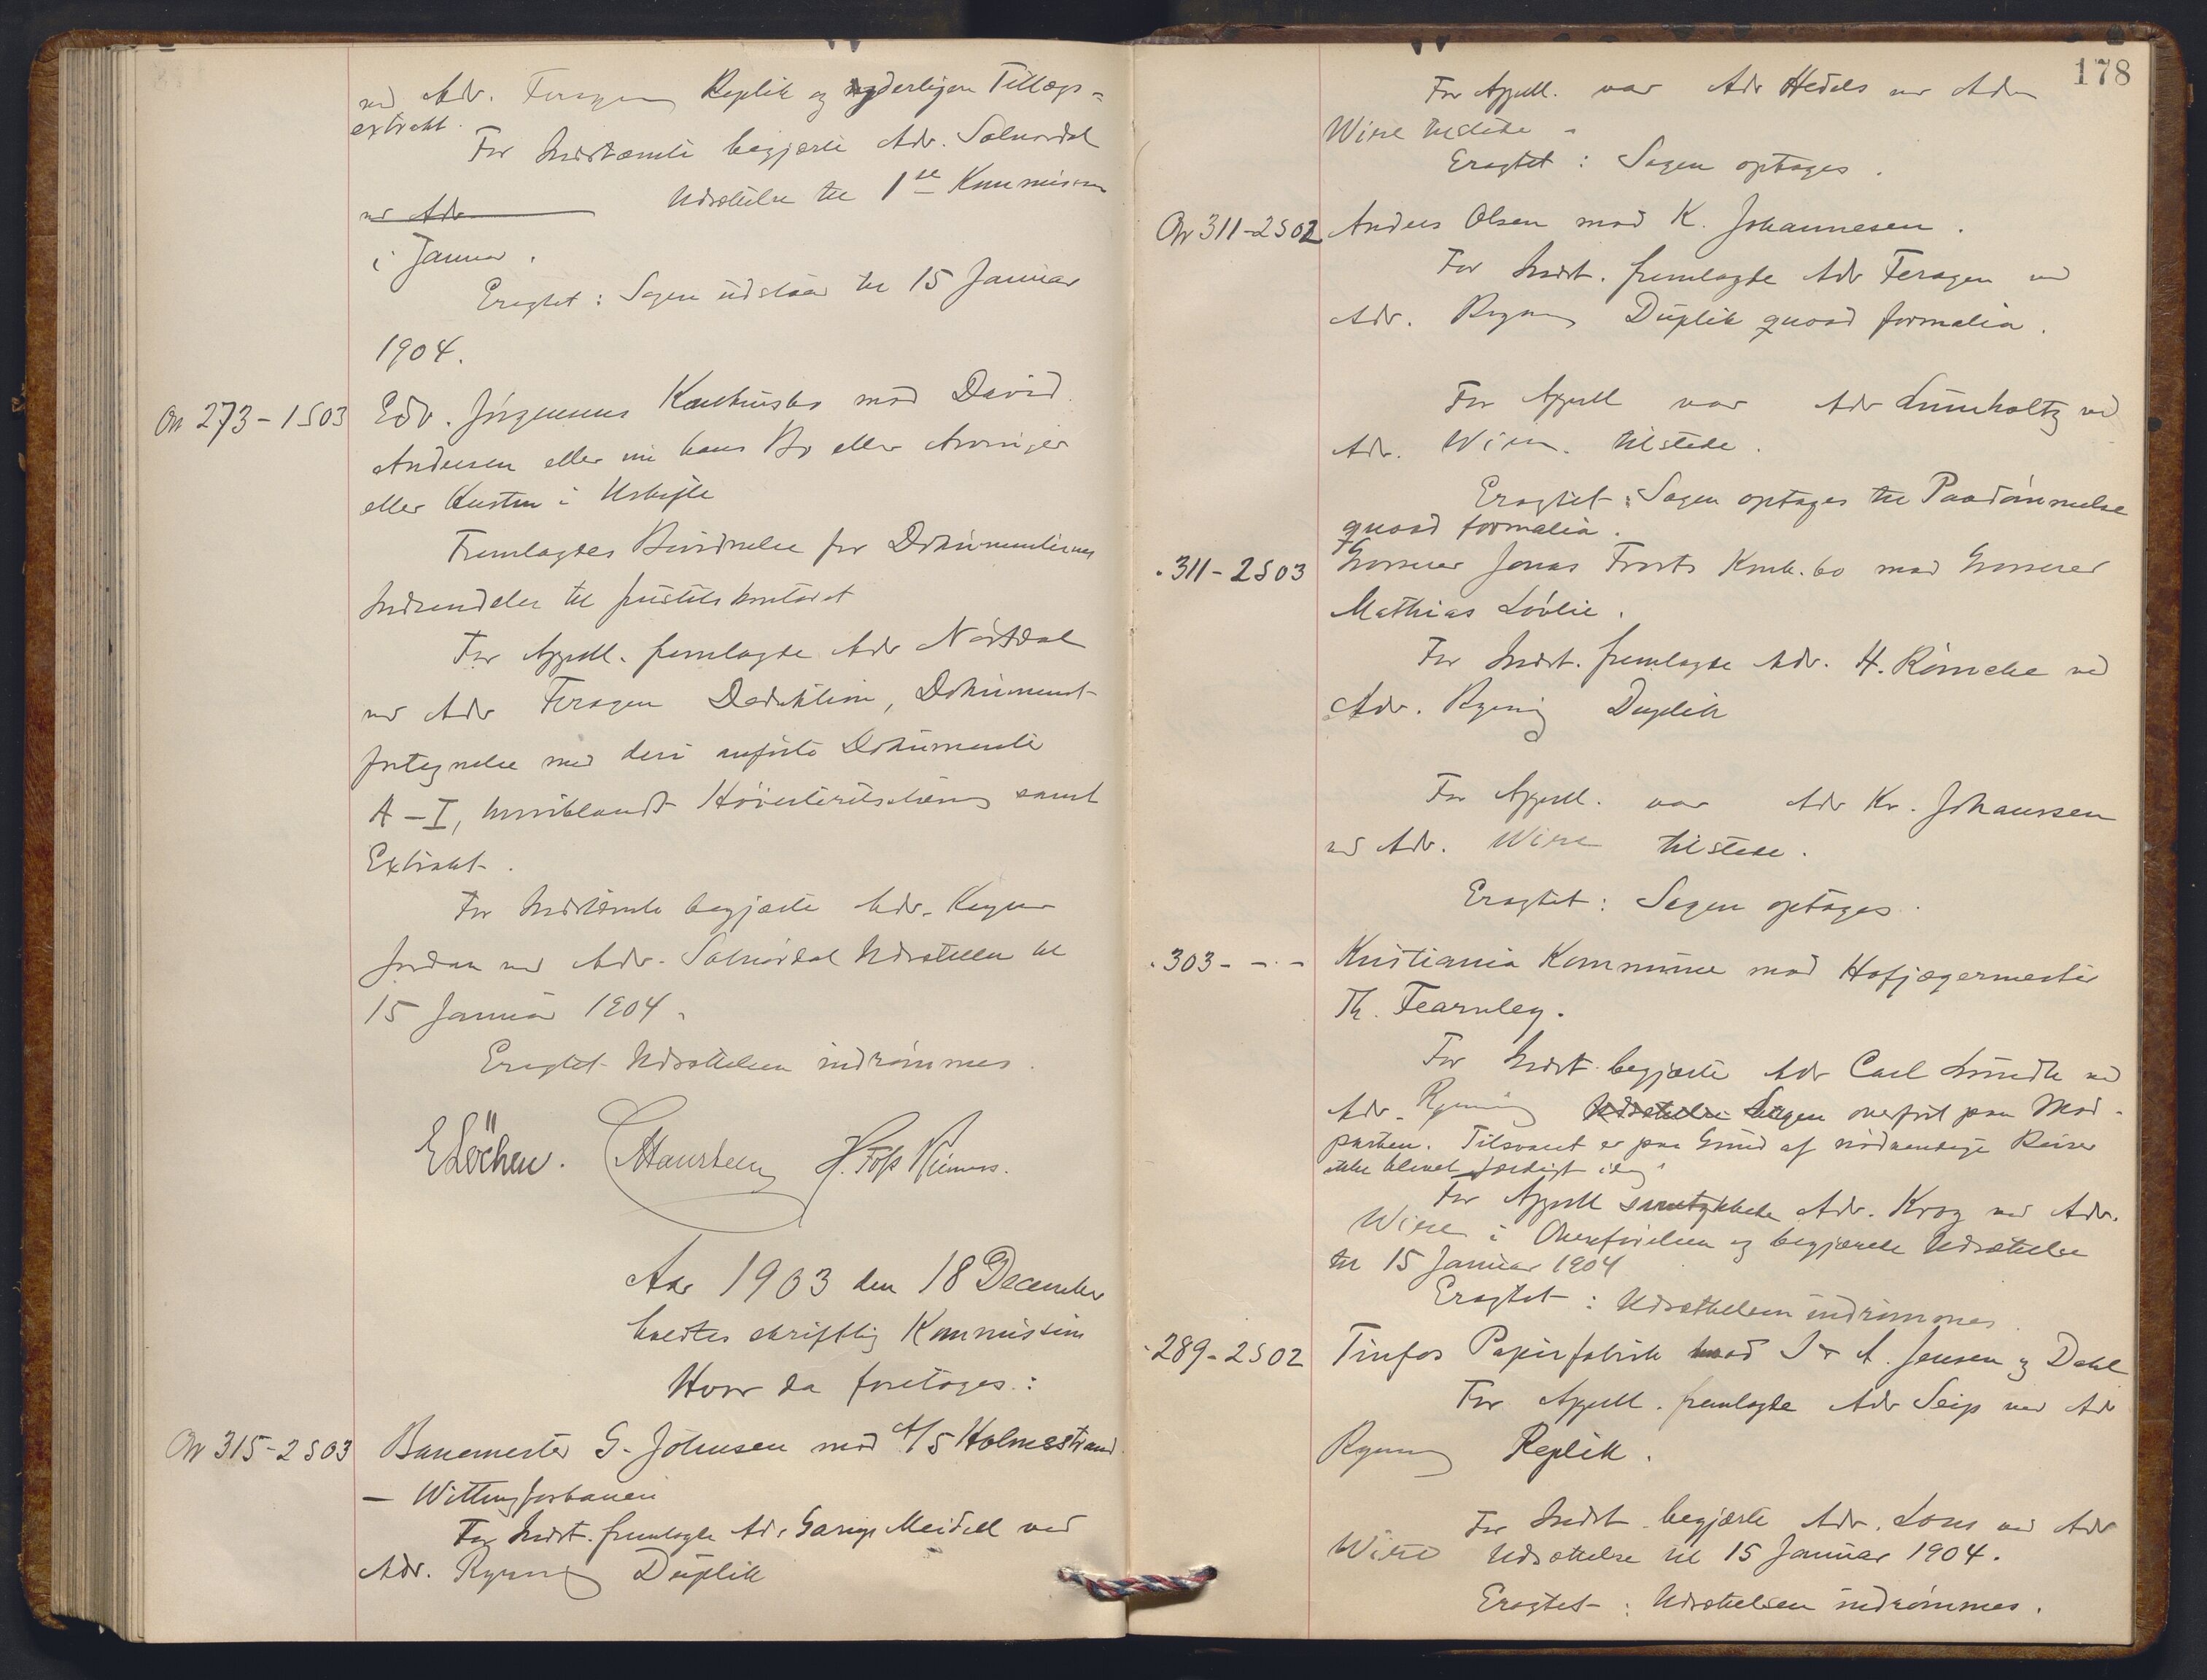 ved Adv. Feragen Replik og yderligere Tillægs-
extrakt.
For Indstævnte begjærte Adv. Solnørdal
ved Adv Udsættelse til 1ste Kommission
i Januar.
Eragtet: Sagen udstaar til 15 Januar
1904.
On 273-1S03 Edv. Jørgensens Konkursbo mod David
Andersen eller nu hans Bo eller Arvinger
eller Kusten i Uskifte
Fremlagdes Bevidnelse for Dokumenternes
Indsendelse til Justitskontoret
For Appell. fremlagde Adv Nørdal
ved Adv Feragen Deduktion, Dokument-
fortegnelse med deri anførte Dokumenter
A-I, hvoriblandt Høiesteretsstævning samt
Extrakt.
For Indstævnte begjærte Adv.
Jordan ved Adv. Solnørdal Udsættelse til
15 Januar 1904.
Eragtet Udsættelsen indrømmes.
E Løchen. C Hansteen H. Foss
Aar 1903 den 18 December
holdtes skriftlig Kommission
Hvor da foretoges:
On 315-2S03 Banemester G. Johnsen mod A/S Holmestrand
- Wittingfosbanen
For Indst. fremlagde Adv Harry Meidell ved
Adv. Rynning Duplik
178
For Appell. var Adv Hedels ved Adv
Wiese tilstede.
Eragtet: Sagen optages.
On 311-2S02 Anders Olsen mod K. Johannesen.
For Indst. fremlagde Adv Feragen ved
Adv. Rynning Duplik quoad formalia.
For Appell var Adv Lumholtz ved
Adv. Wiese tilstede.
Eragtet: Sagen optages til Paadømmelse
quoad formalia.
" 311-2S03 Grosserer Jonas Frosts Konk.bo mod Grosserer
Mathias Løvlie.
For Indst. fremlagde Adv. H. Rømcke ved
Adv. Rynning Duplik
For Appell. var Adv Kr. Johanssen
ved Adv. Wiese tilstede.
Eragtet: Sagen optages.
" 303 - - " - Kristiania Kommune mod Hofjægermester
Th. Fearnley.
For Indst. begjærte Adv Carl Lundh ved
Adv. Rynning Udsættelse Sagen overført paa Mod-
parten. Tilsvaret er paa Grund af nødvendige Reiser
ikke blevet færdigt idag
For Appell samtykkede Adv. Krog ved Adv.
Wiese i Overførelsen og begjærede Udsættelse
til 15 Januar 1904
Eragtet: Udsættelsen indrømmes.
" 289-2S02 Tinfos Papirfabrik mod S & A. Jensen og Dahl
For Appell. fremlagde Adv Seip ved Adv
Rynning Replik.
For Indst. begjærte Adv. Lous ved Adv
Wiese Udsættelse til 15 Januar 1904.
Eragtet: Udsættelsen indrømmes.